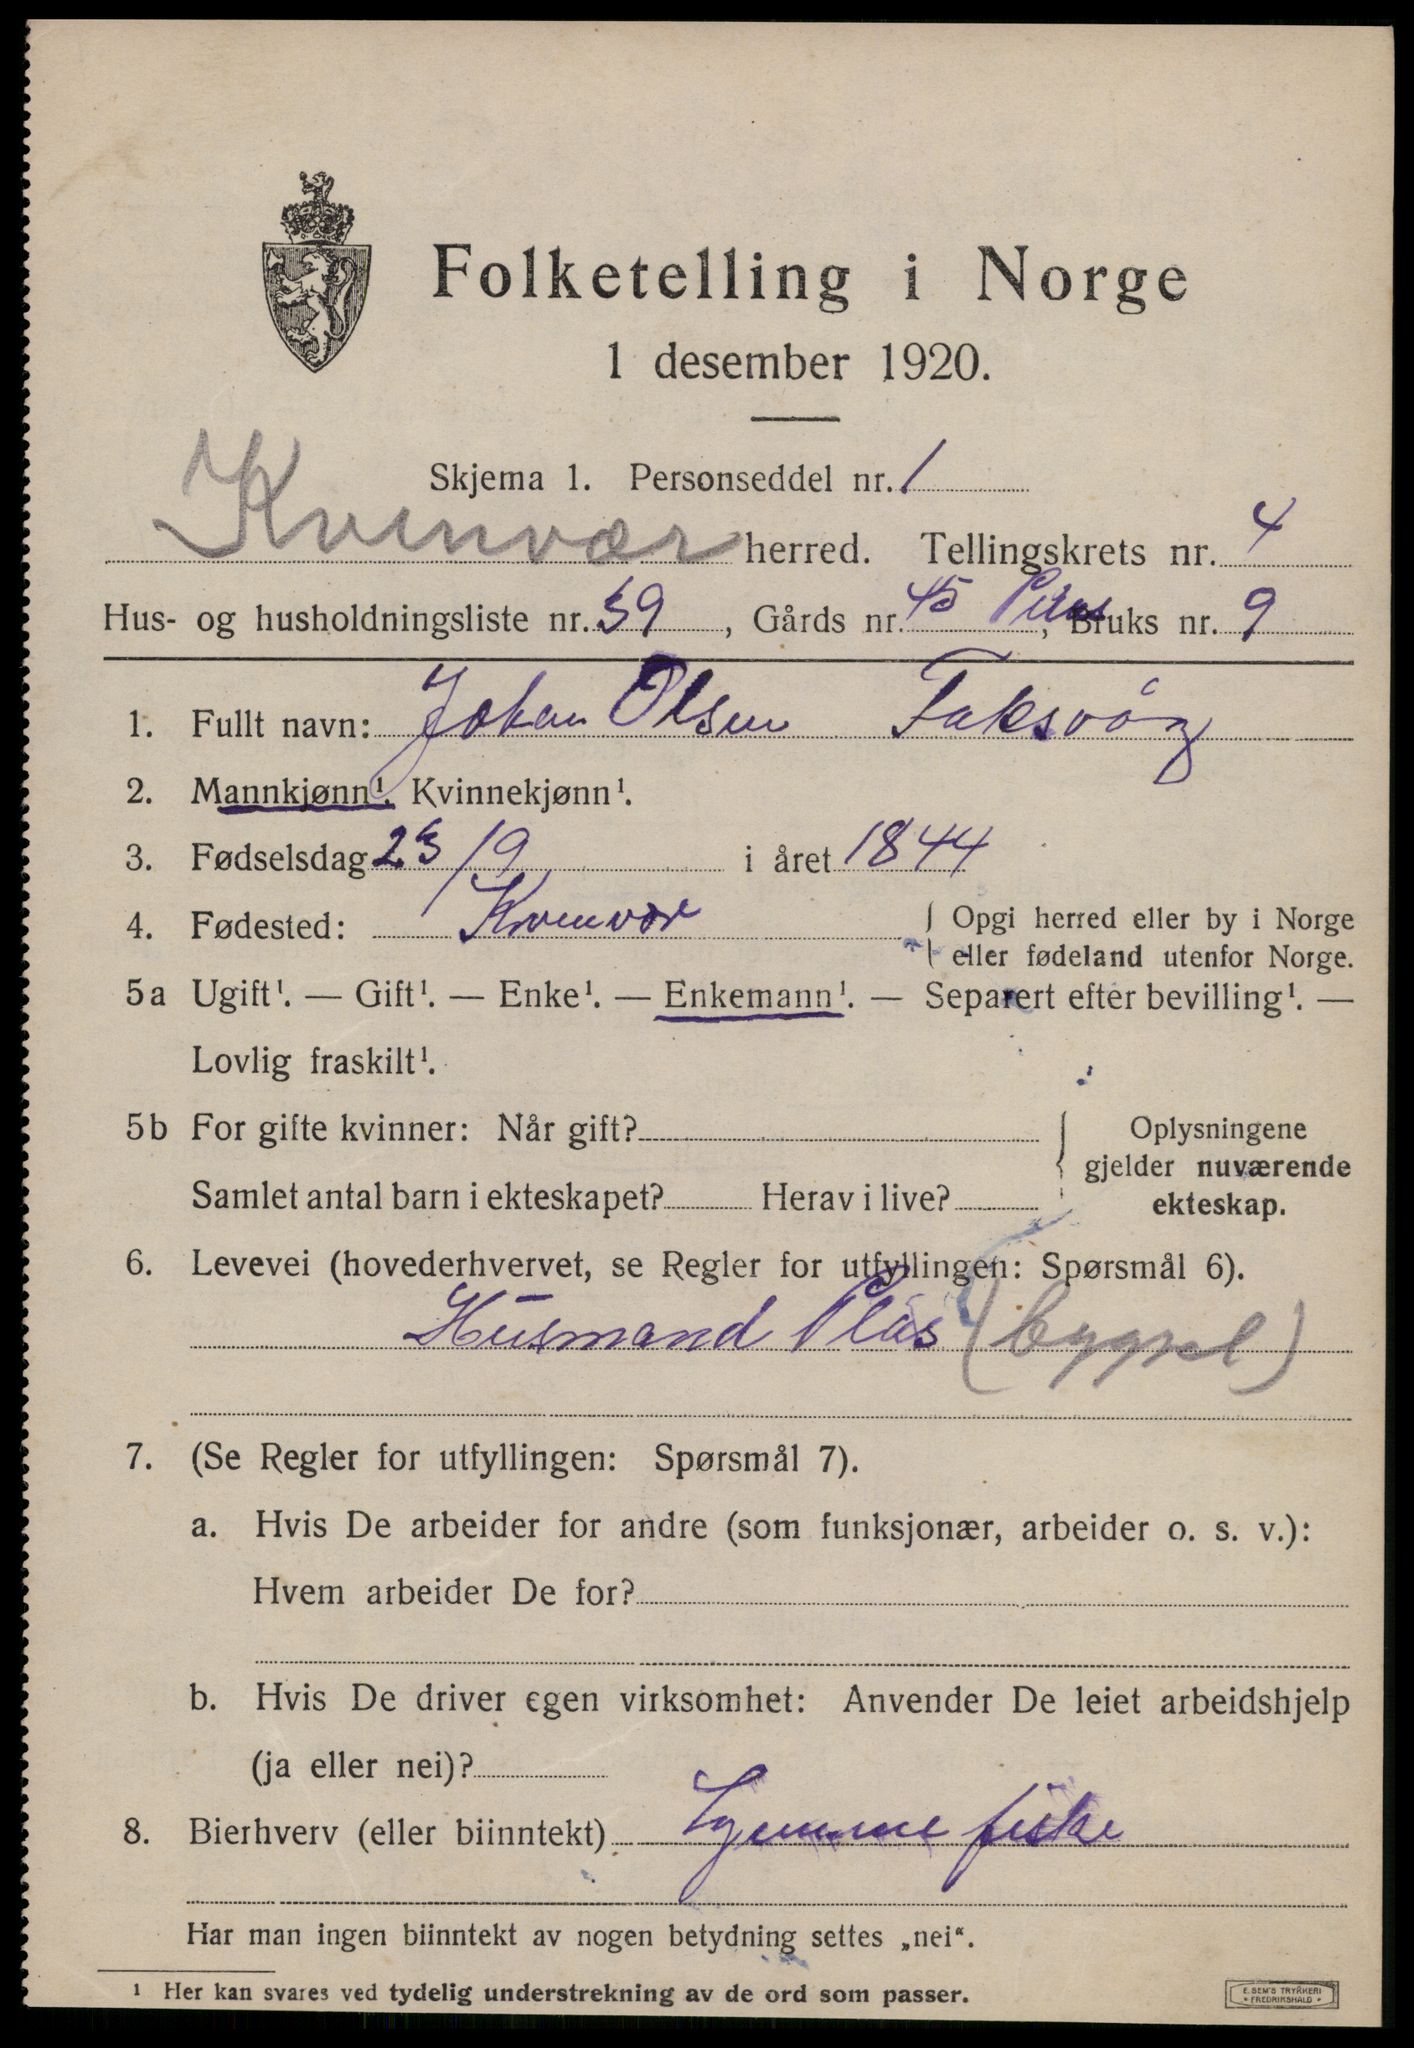 Folketelling i Norge
1 desember 1920.
Skjema 1. Personseddel nr. 1
Kvenvær herred. Tellingskrets nr. 4
Hus- og husholdningsliste nr. 59, Gårds nr. 45 Plas, Bruks nr. 9
1. Fullt navn: Johan Olsen Taksvåg
2. Mannkjønn¹. Kvinnekjønn¹.
3. Fødselsdag 23/9 i året 1844
4. Fødested: Kvenvær { Opgi herred eller by i Norge
eller fødeland utenfor Norge.
5a Ugift¹. — Gift¹. — Enke¹. — Enkemann¹. — Separert efter bevilling¹. —
Lovlig fraskilt¹.
5b For gifte kvinner: Når gift?
Samlet antal barn i ekteskapet? Herav i live?
Oplysningene
gjelder nuværende
ekteskap.
6. Levevei (hovederhvervet, se Regler for utfyllingen: Spørsmål 6).
Husmand Plas (bygsel)
7. (Se Regler for utfyllingen: Spørsmål 7).
a. Hvis De arbeider for andre (som funksjonær, arbeider o. s. v.):
Hvem arbeider De for?
b. Hvis De driver egen virksomhet: Anvender De leiet arbeidshjelp
(ja eller nei)?
8. Bierhverv (eller biinntekt) Hjemme fiske
Har man ingen biinntekt av nogen betydning settes „nei“.
¹ Her kan svares ved tydelig understrekning av de ord som passer.
E. SEM'S TRYKKERI
• FREDRIKSHALD •